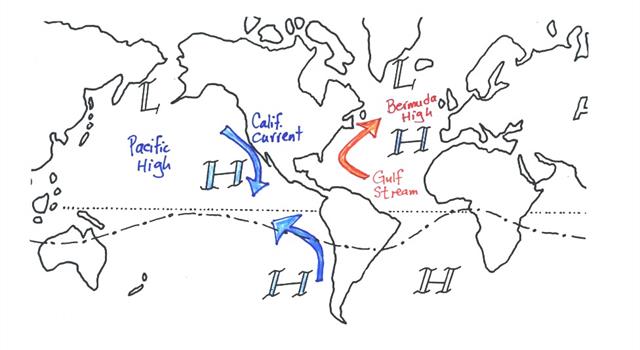 L
L
Bermuda
High
Calif.
Current
Pacific
High
H
H
Gulf
Stream
H
H